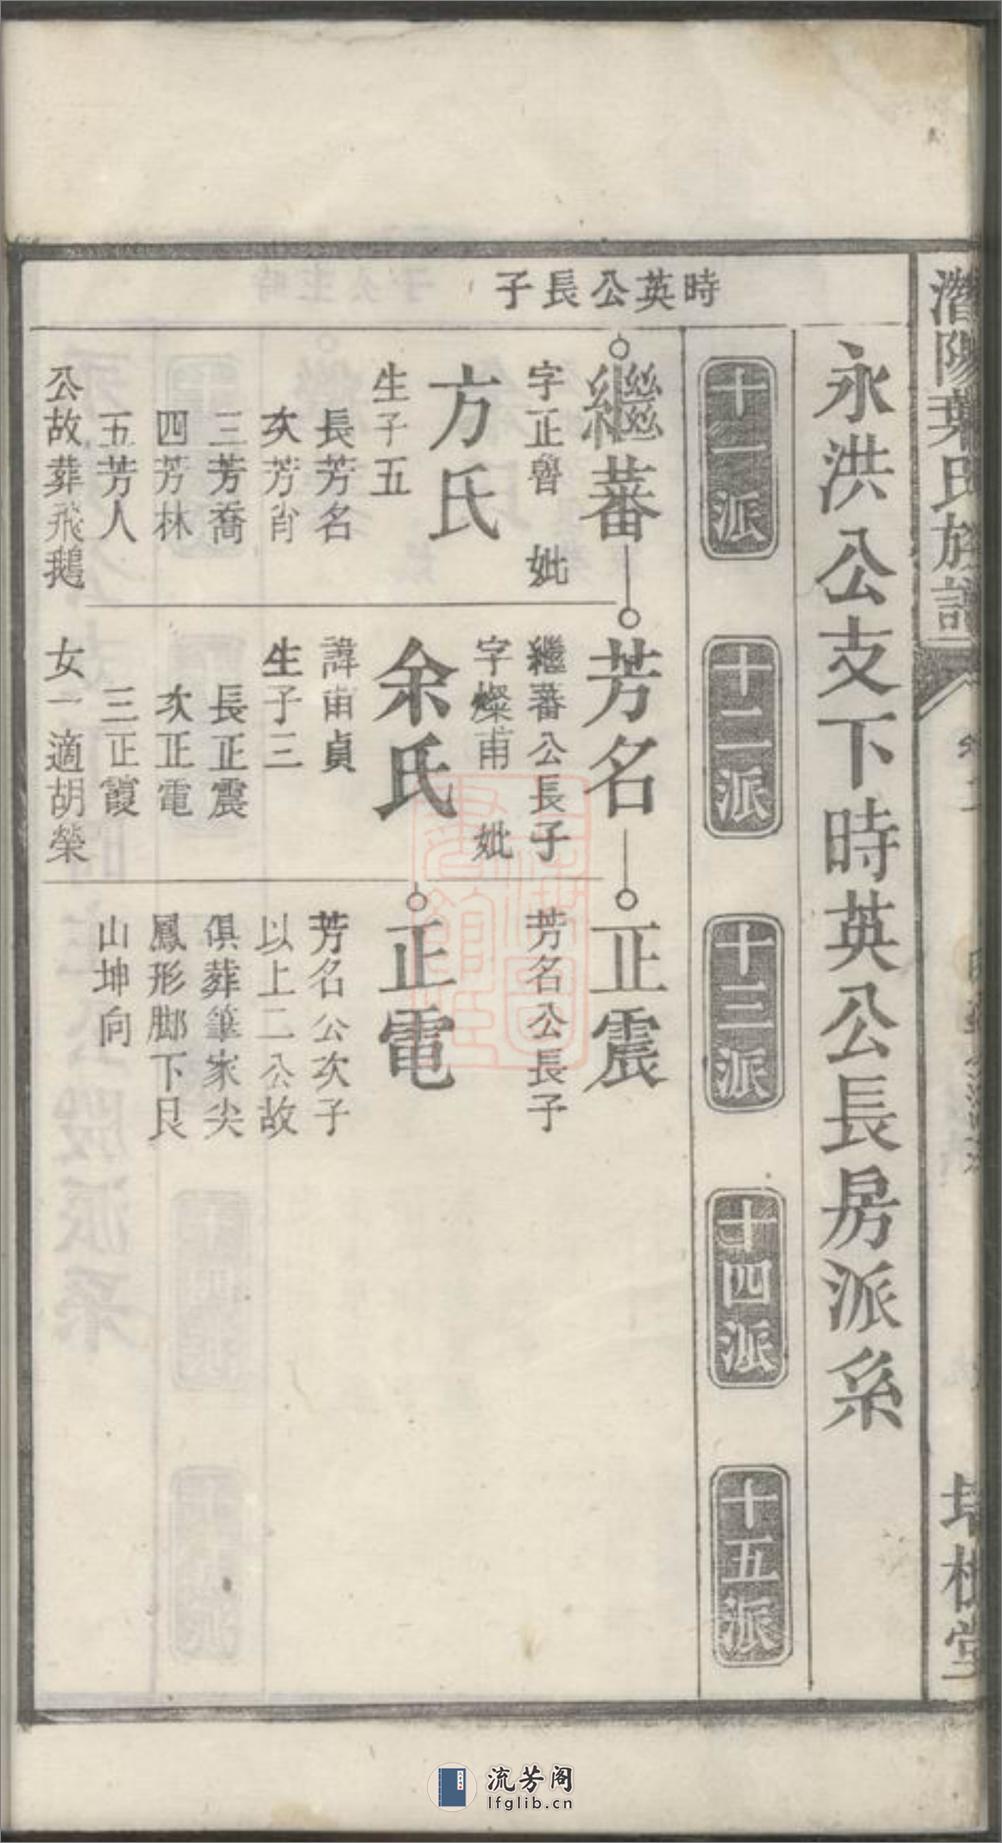 潛陽葉氏族譜
永洪公支下時英公長房派系
十一派
十二派
十三派
十四派
十五派
時英公長子
繼蕃
字正魯 妣
方氏
生子五
長芳名
次芳肖
三芳喬
四芳林
五芳人
公故葬飛鵝
芳名
繼蕃公長子
字燦甫 妣
余氏
諱甫貞
生子三
長正震
次正電
三正霞
女一適胡榮
正震
芳名公長子
正電
芳名公次子
以上二公故
俱葬筆家尖
鳳形脚下艮
山坤向
流芳阁
lfglib.cn